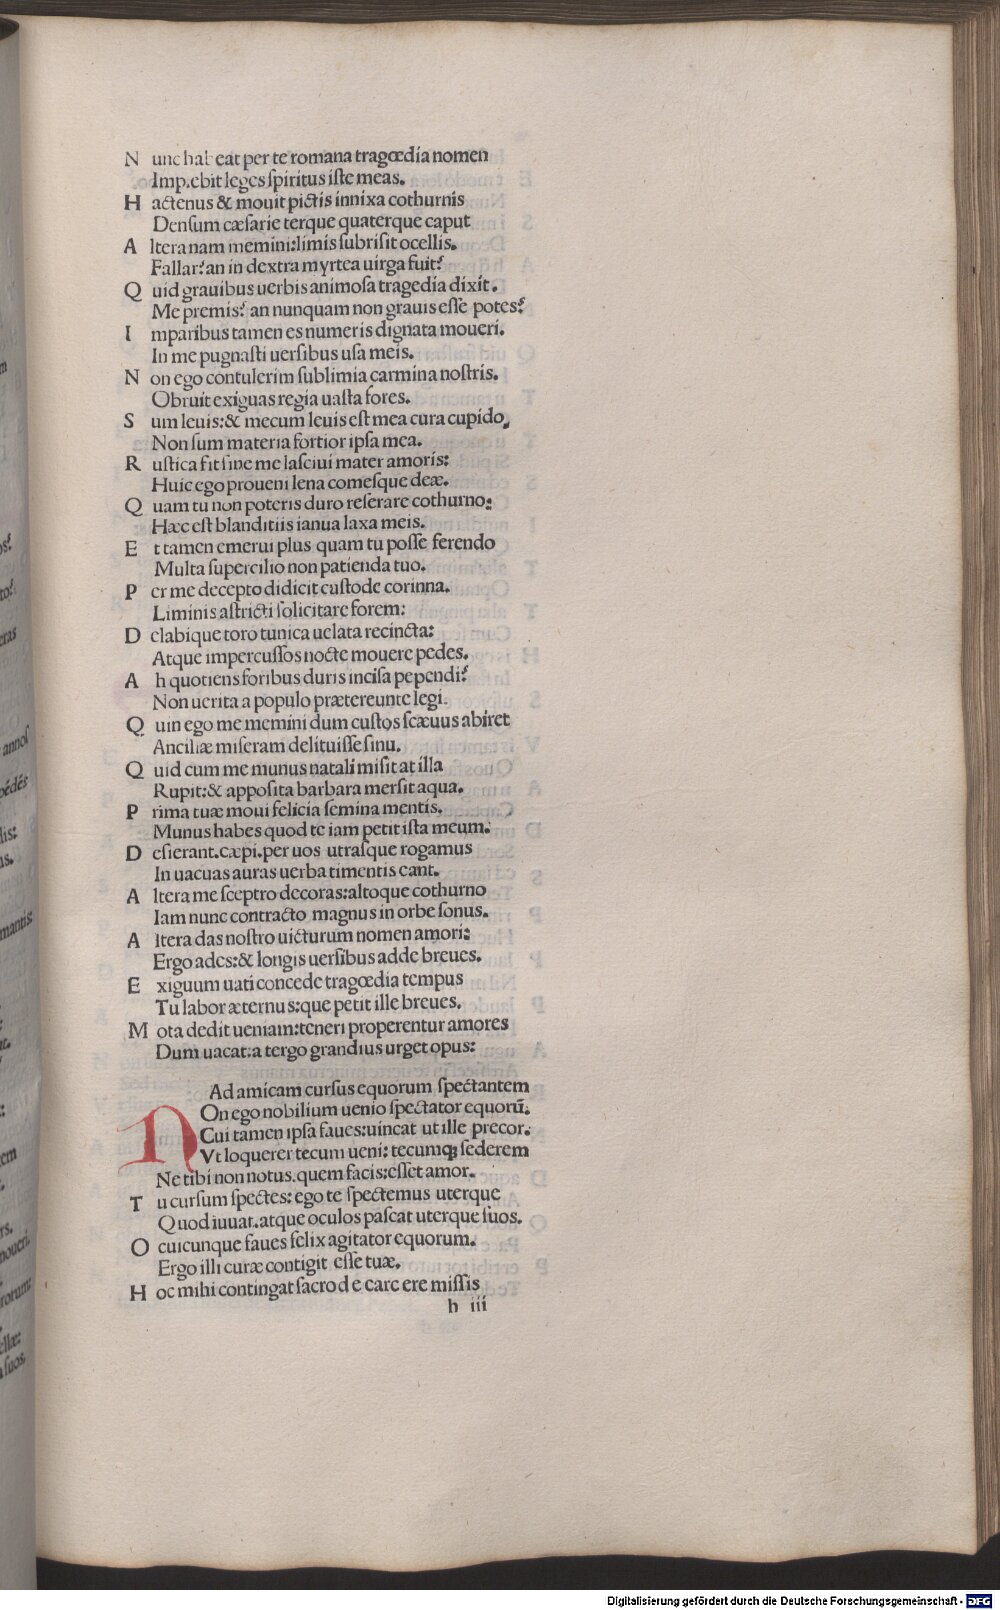 N unc habeat per te romana tragœdia nomen
Imp.ebit leges ſpiritus iſte meas.
H actenus & mouit pictis innixa cothurnis
Denſum cæſarie terque quaterque caput
A ltera nam memini:limis ſubriſit ocellis.
Fallar? an in dextra myrtea uirga fuit?
Q uid grauibus uerbis animoſa tragedia dixit.
Me premis? an nunquam non grauis eſſe potes?
I mparibus tamen es numeris dignata moueri.
In me pugnaſti uerſibus uſa meis.
N on ego contulerim ſublimia carmina noſtris.
Obruit exiguas regia uaſta fores.
S um leuis:& mecum leuis eſt mea cura cupido,
Non ſum materia fortior ipſa mea.
R uſtica fit ſine me laſciui mater amoris:
Huic ego proueni lena comeſque deæ.
Q uam tu non poteris duro reſerare cothurno:
Hæc eſt blanditiis ianua laxa meis.
E t tamen emerui plus quam tu poſſe ferendo
Multa ſupercilio non patienda tuo.
P er me decepto didicit cuſtode corinna.
Liminis aſtricti ſolicitare forem:
D elabique toro tunica uelata recincta:
Atque impercuſſos nocte mouere pedes.
A h quotiens foribus duris inciſa pependi?
Non uerita a populo prætereunte legi.
Q uin ego me memini dum cuſtos ſcæuus abiret
Ancillæ miſeram delituiſſe ſinu.
Q uid cum me munus natali miſit at illa
Rupit:& appoſita barbara merſit aqua.
P rima tuæ moui felicia ſemina mentis.
Munus habes quod te iam petit iſta meum:
D eſierant.cæpi.per uos utraſque rogamus
In uacuas auras uerba timentis eant.
A ltera me ſceptro decoras:altoque cothurno
Iam nunc contracto magnus in orbe ſonus.
A ltera das noſtro uicturum nomen amori:
Ergo ades:& longis uerſibus adde breues.
E xiguum uati concede tragœdia tempus
Tu labor æternus:que petit ille breues.
M ota dedit ueniam:teneri properentur amores
Dum uacat:a tergo grandius urget opus:
Ad amicam curſus equorum ſpectantem
N On ego nobilium uenio ſpectator equorū.
Cui tamen ipſa faues:uincat ut ille precor.
Vt loquerer tecum ueni: tecumqꝫ ſederem
Ne tibi non notus.quem facis:eſſet amor.
T u curſum ſpectes: ego te ſpectemus uterque
Quod iuuat.atque oculos paſcat uterque ſuos.
O cuicunque faues felix agitator equorum.
Ergo illi curæ contigit eſſe tuæ.
H oc mihi contingat ſacro de carcere miſſis
h iii
Digitalisierung gefördert durch die Deutsche Forschungsgemeinschaft - DFG